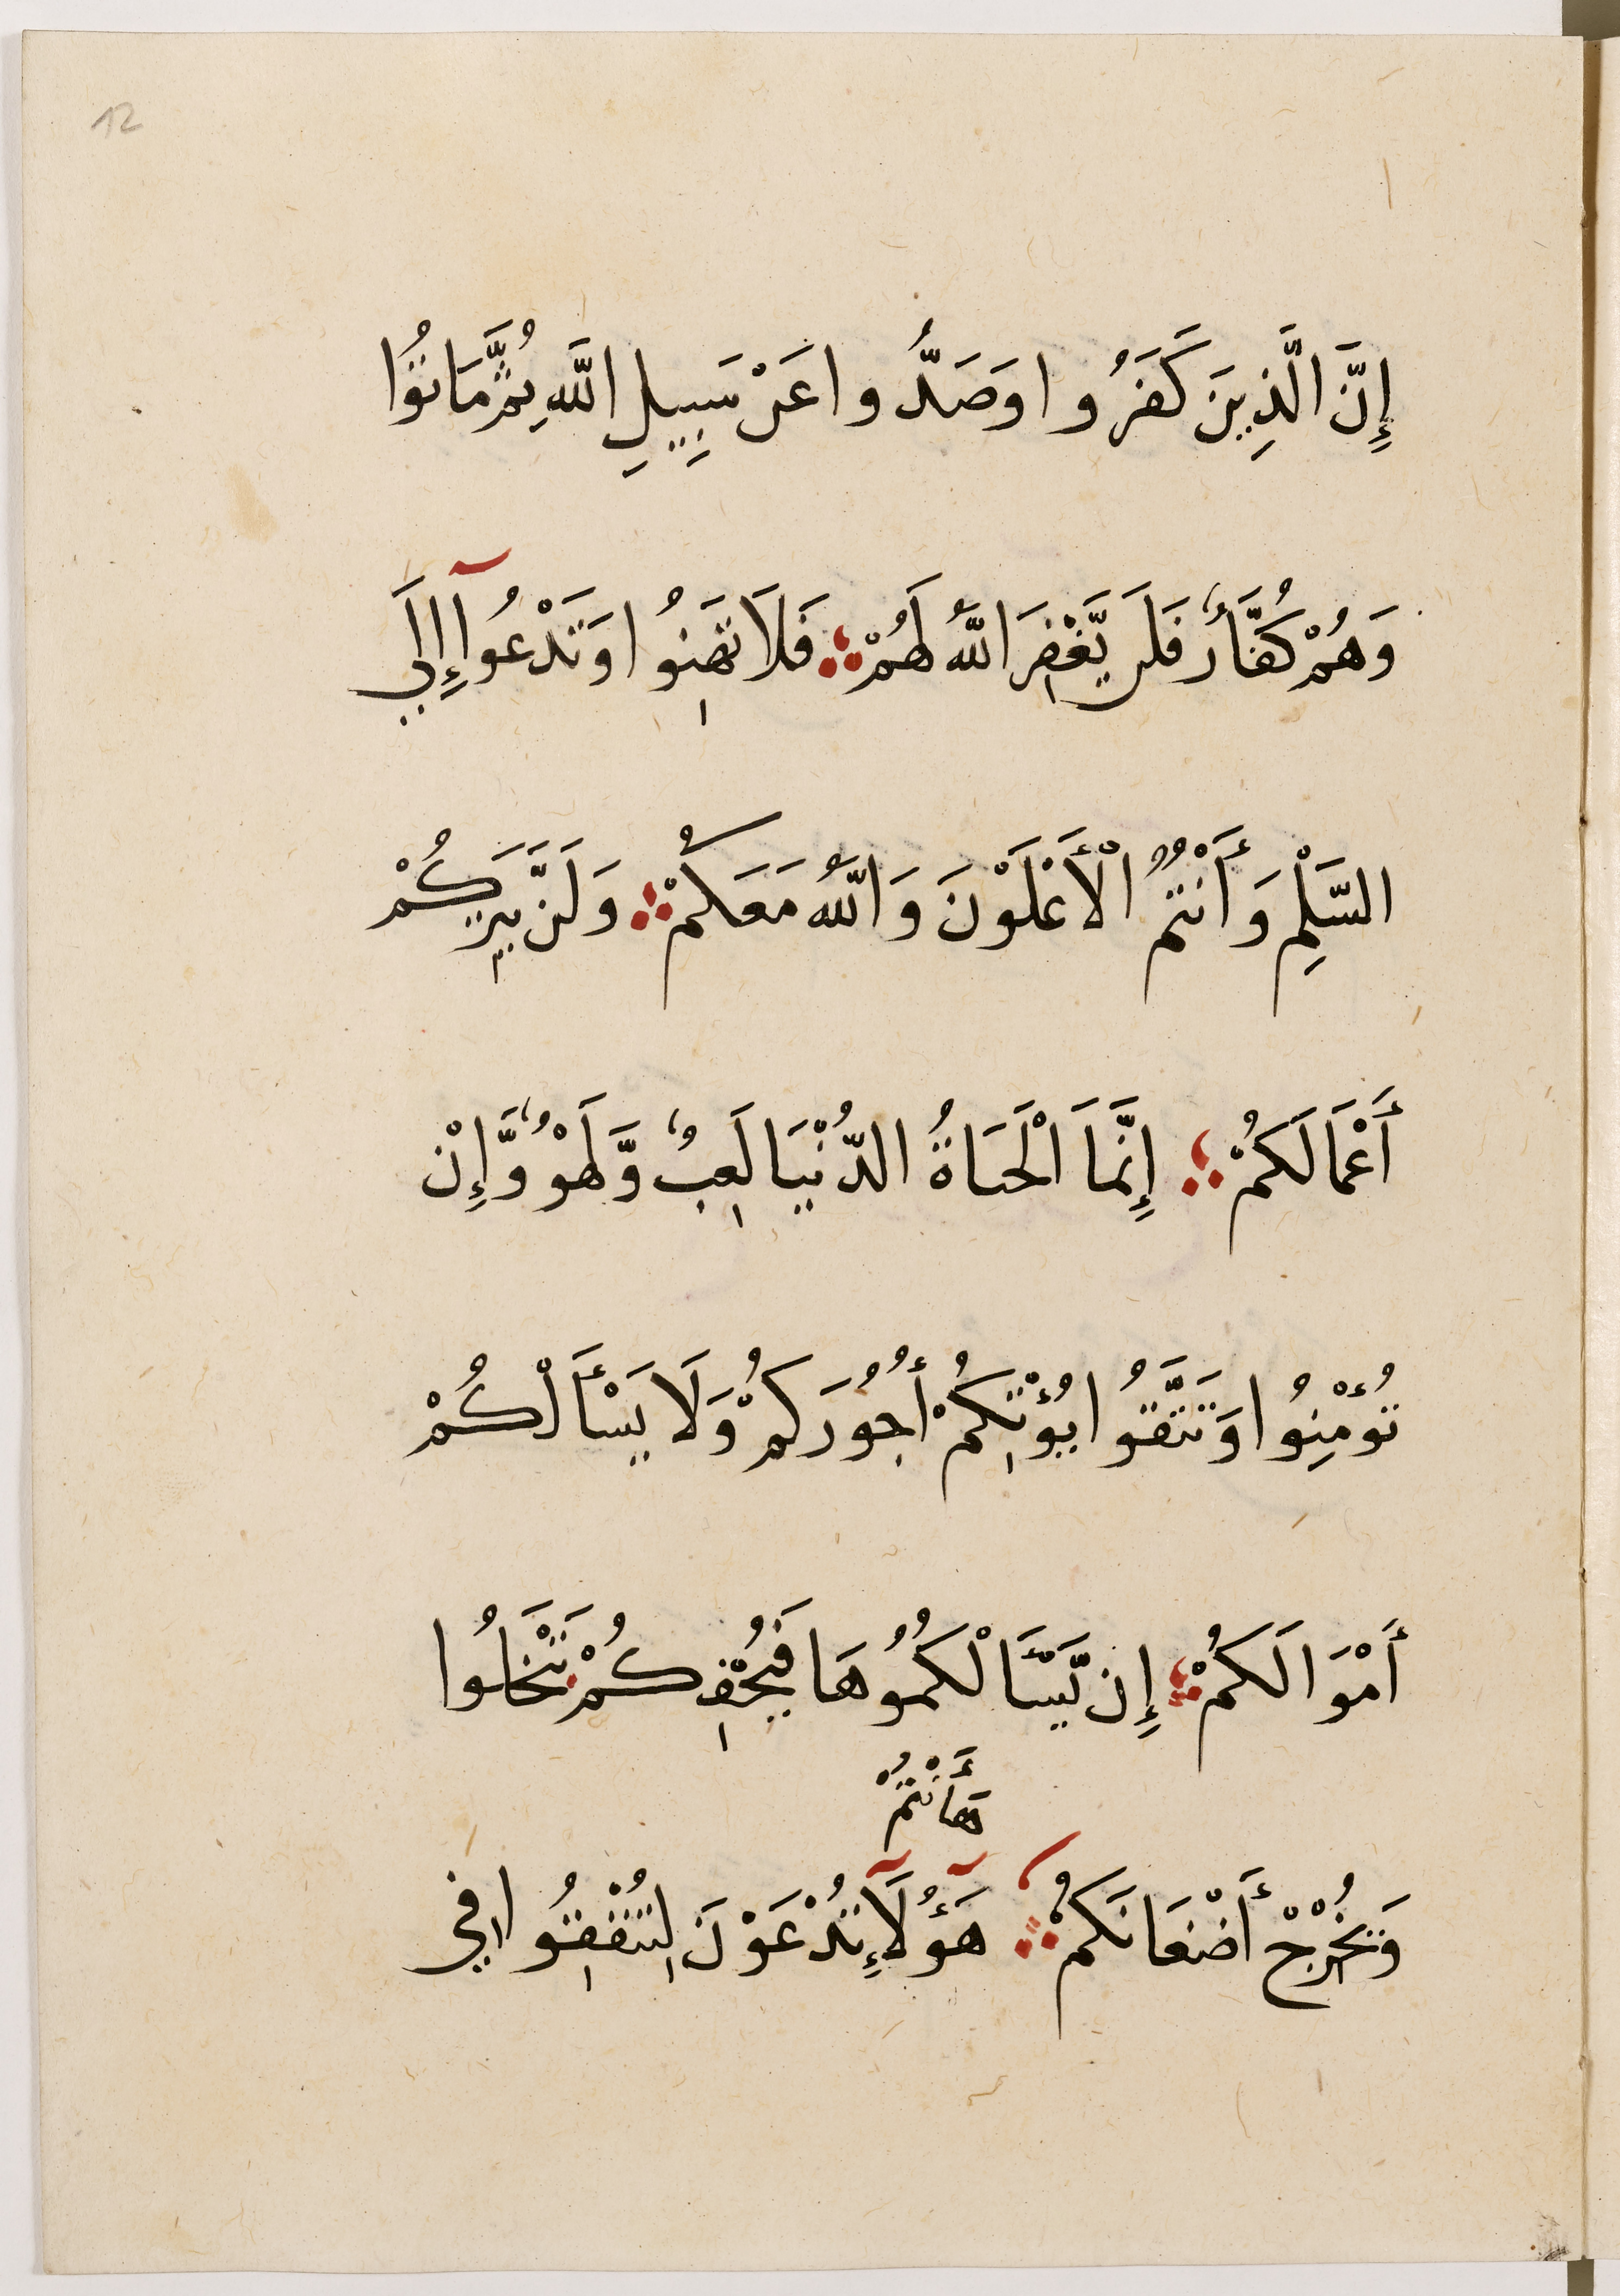 12
إِنَّ الَّذِينَ كَفَرُوا وَصَدُّوا عَنْ سَبِيلِ اللَّهِ ثُمَّ مَاتُوا
وَهُمْ كُفَّارٌ فَلَن يَّغْفِرَ اللَّهُ لَهُمْ فَلَا تَهِنُوا وَتَدْعُوآ إِلَي
السَّلْمِ وَأَنْتُمُ الْأَعْلَوْنَ وَاللَّهُ مَعَكُمْ وَلَنْ يَّتِرَكُمْ
أَعْمَالَكُمْ إِنَّمَا الْحَيَاةُ الدُّنْيَا لَعِبٌ وَّلَهْوٌ وَّإِنْ
تُؤْمِنُوا وَتَتَّقُوا يُؤْتِكُمْ أُجُورَكُمْ وَلَا يَسْأَلْكُمْ
أَمْوَالَكُمْ إِن يَّسْأَلْكُمُوهَا فَيُحْفِكُمْ تَبْخَلُوا
هَاأَنْتُمْ
وَيُخْرِجْ أَضْغَانَكُمْ هَؤُلَآءِ تُدْعَوْنَ لِتُنْفِقُوا فِي